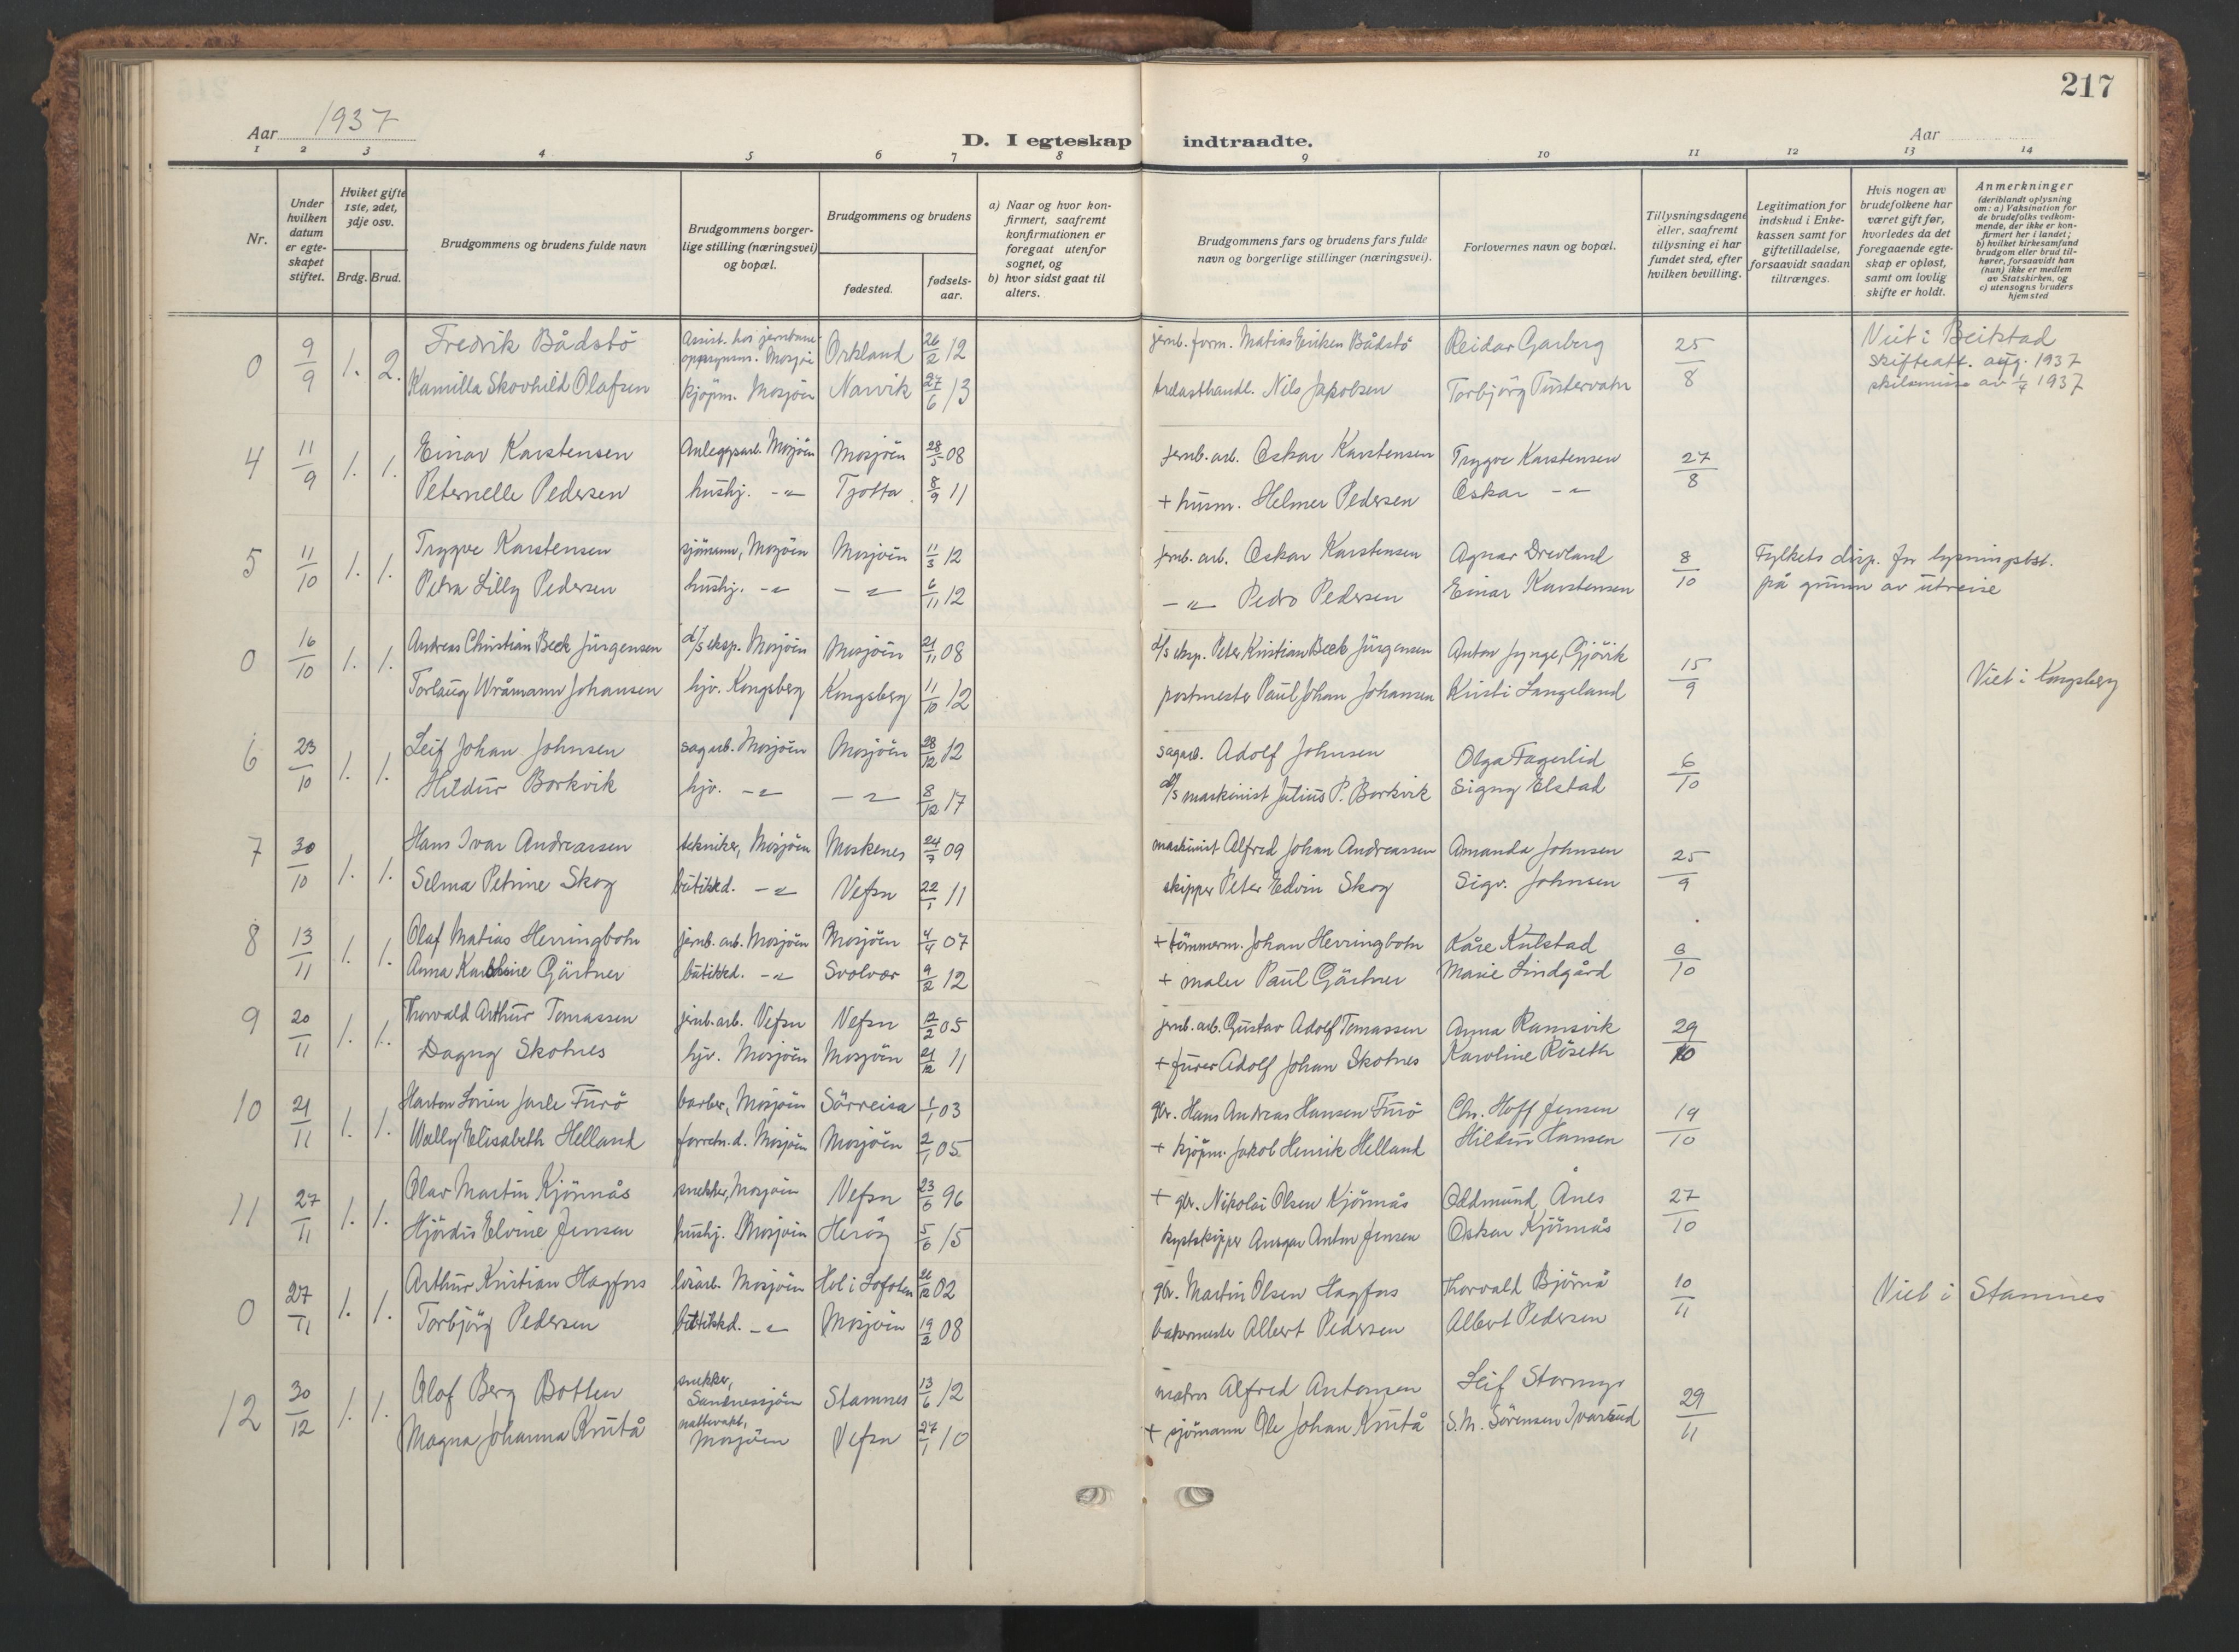 217
Aar 1937
D. I egteskap indtraadte.
Aar
1 2 3 4 5 6 7 8 9 10 11 12 13 14
Nr.
Under hvilken datum er egteskapet stiftet.
Hviket gifte 1ste, 2det, 3dje osv.
Brdg. Brud.
Brudgommens og brudens fulde navn
Brudgommens borgerlige stilling (næringsvei) og bopæl.
Brudgommens og brudens
fødested.
fødselsaar.
a) Naar og hvor konfirmert, saafremt konfirmationen er foregaat utenfor sognet, og
b) hvor sidst gaat til alters.
Brudgommens fars og brudens fars fulde navn og borgerlige stillinger (næringsvei).
Forlovernes navn og bopæl.
Tillysningsdagene eller, saafremt tillysning ei har fundet sted, efter hvilken bevilling.
Legitimation for indskud i Enkekassen samt for giftetilladelse, forsaavidt saadan tiltrænges.
Hvis nogen av brudefolkene har været gift før, hvorledes da det foregaaende egteskap er opløst, samt om lovlig skifte er holdt.
Anmerkninger (deriblandt oplysning om: a) Vaksination for de brudefolks vedkommende, der ikke er konfirmert her i landet; b) hvilket kirkesamfund brudgom eller brud tilhører, forsaavidt han (hun) ikke er medlem av Statskirken, og c) utensogns bruders hjemsted
0 9/9 1. 2. Fredrik Bådstö Assist. hos jernbane Mosjøen Orkland 26/2 12 jernb. form. Matias Eriksen Bådstö Reidar Garberg 25/8 Viet i Beitstad
skifteatt. aug. 1937
Kamilla Skovhild Olafsen kjöpm. Mosjöen Narvik 27/6 13 trelasthandl. Nils Jakobsen Torbjörg Tustervatn skilsmisse av 1/4 1937
4 11/9 1. 1. Einar Karstensen Anleggsarb. Mosjöen Mosjöen 28/5 08 jernb. arb. Oskar Karstensen Trygve Karstensen 27/8
Peternelle Pedersen hushj. -"- Tjötta 8/9 11 + husm. Helmer Pedersen Oskar -"-
5 11/10 1. 1. Trygve Karstensen sjömann, Mosjöen Mosjöen 11/3 12 jernb. arb. Oskar Karstensen Agnar Drevland 8/10 Fylkets disp. for lysningstst.
Petra Lilly Pedersen hushj. -"- -"- 6/11 12 -"- Pedro Pedersen Einar Karstensen på grunn av utreise
0 16/10 1. 1. Andreas Christian Beck Jürgensen d/s eksp. Mosjöen Mosjöen 21/11 08 d/s eksp. Peter Kristian Beck Jürgensen Anton Jynge, Gjövik 15/9
Torlaug Wråmann Johansen hjv. Kongsberg Kongsberg 11/10 12 postmester Paul Johan Johansen Kristi Langeland Viet i Kongsberg
6 23/10 1. 1. Leif Johan Johnsen sagarb. Mosjöen Mosjöen 28/12 12 sagarb. Adolf Johnsen Olga Fagerlid 6/10
Hildur Borkvik hjv. -"- -"- 8/12 17 d/s maskinist Julius P. Borkvik Signy Elstad
7 30/10 1. 1. Hans Ivar Andreassen tekniker, Mosjöen Moskenes 24/7 09 maskinist Alfred Johan Andreassen Amanda Johnsen 25/9
Selma Petrine Skog butikkd. -"- Vefsn 22/1 11 skipper Peter Edvin Skog Sigv. Johnsen
8 13/11 1. 1. Olaf Matias Herringbotn jernb. arb. Mosjöen Mosjöen 4/4 07 + tömmerm. Johan Herringbotn Kåre Kulstad 6/10
Anna Gärtner butikkd. -"- Svolvær 9/2 12 + maler Paul Gärtner Marie Lindgård
9 20/11 1. 1. Thorvald Arthur Tomassen jernb. arb. Vefsn Vefsn 2/2 05 jernb. arb. Gustav Adolf Tomassen Anna Ramsvik 29/10
Dagny Skotnes hjv. Mosjöen Mosjöen 21/12 11 + furer Adolf Johan Skotnes Karoline Röseth
10 21/11 1. 1. Jarle Furö barber, Mosjöen Sörreisa 1/1 03 gbr. Hans Andreas Hansen Furö Chr. Hoff Jensen 19/10
Wally Elisabeth Helland forretn. d. Mosjöen Mosjöen 2/1 05 + kjöpm. Jakob Henrik Helland Hildur Hansen
11 27/11 1. 1. Olav Martin Kjönnås snekker, Mosjöen Vefsn 23/6 96 + gbr. Nikolai Olsen Kjönnås Oddmund Ånes 27/10
Hjördis Elvine Jensen hushj. Mosjöen Heröy 5/6 15 kystskipper Ansgar Anton Jensen Oskar Kjönnås
0 27/11 1. 1. Arthur Kristian Hagfors lösarb. Mosjöen Hol i Lofoten 26/12 02 gbr. Martin Olsen Hagfors Thorvald Björnå 10/11 Viet i Stamnes
Torbjörg Pedersen butikkd. -"- Mosjöen 19/2 08 bakermester Albert Pedersen Albert Pedersen
12 30/12 1. 1. Olaf Berg Botten snekker, Sandnessjöen Stamnes 13/6 12 Alfred Antonsen Leif Stormyr 29/11
Magna Johanna Knutå nattevakt, Mosjöen Vefsn 27/1 10 + sjömann Ole Johan Knutå S. M. Sörensen Ivarrud